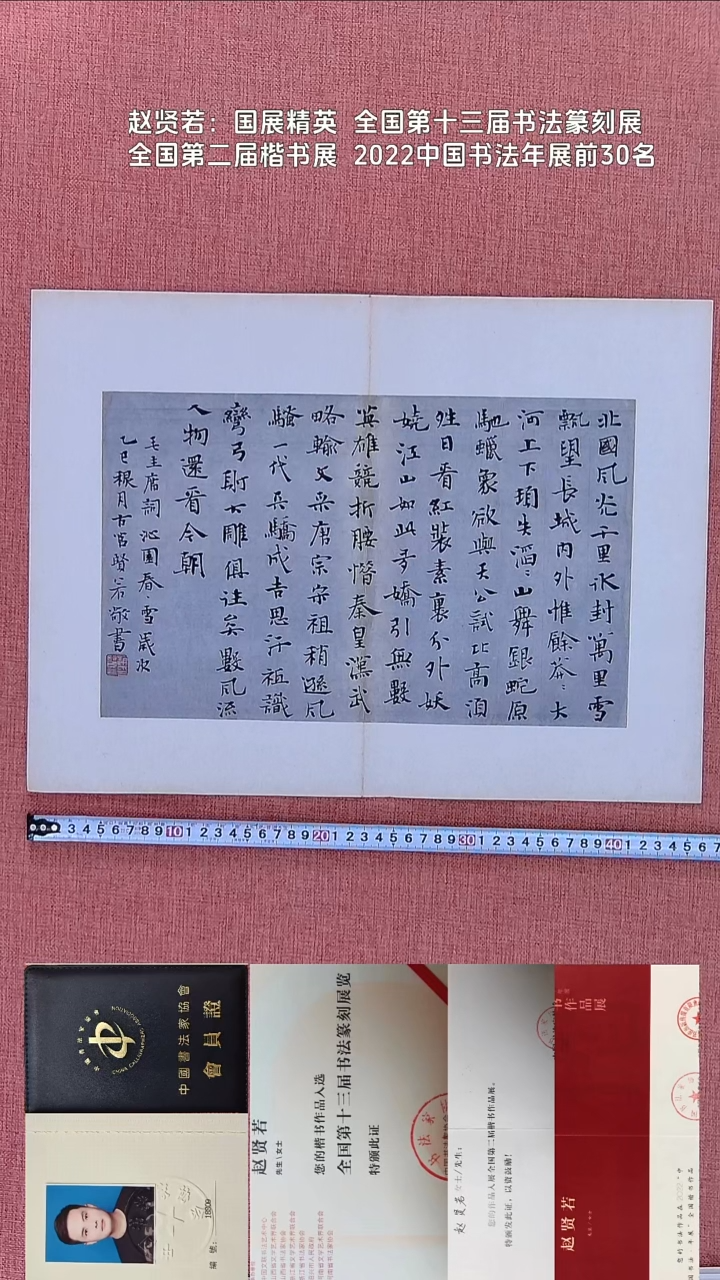 赵贤若：国展精英 全国第十三届书法篆刻展
全国第二届楷书展 2022中国书法年展前30名
北國風光千里冰封萬里雪
飄望長城内外惟餘莽〻大
河上下頓失滔〻山舞銀蛇原
馳蠟象欲與天公試比高須
日看紅裝素裹分外妖
嬈江山如此多嬌引無數
英雄競折腰惜秦皇漢武
略輸文采唐宗宋祖稍遜風
騷一代天驕成吉思汗祖識
彎弓射大雕俱往矣數風流
人物還看今朝
毛主席詞沁園春·雪歲次
乙巳月古賢若敬書
3 4 5 6 7 8 9 10 1 2 3 4 5 6 7 8 9 20 1 2 3 4 5 6 7 8 9 30 1 2 3 4 5 6 7 8 9 40 1 2 3 4 5 6 7
中國書法家協會
會員證
CHINA CALLIGRAPHERS ASSOCIATION
編號：
赵贤若
先生\女士
您的楷书作品入选
全国第十三届书法篆刻展览
特颁此证
赵贤若 女士/先生：
您的作品入展全国第二届楷书作品展。
特颁发此证，以资鼓励！
书作品展
赵贤若